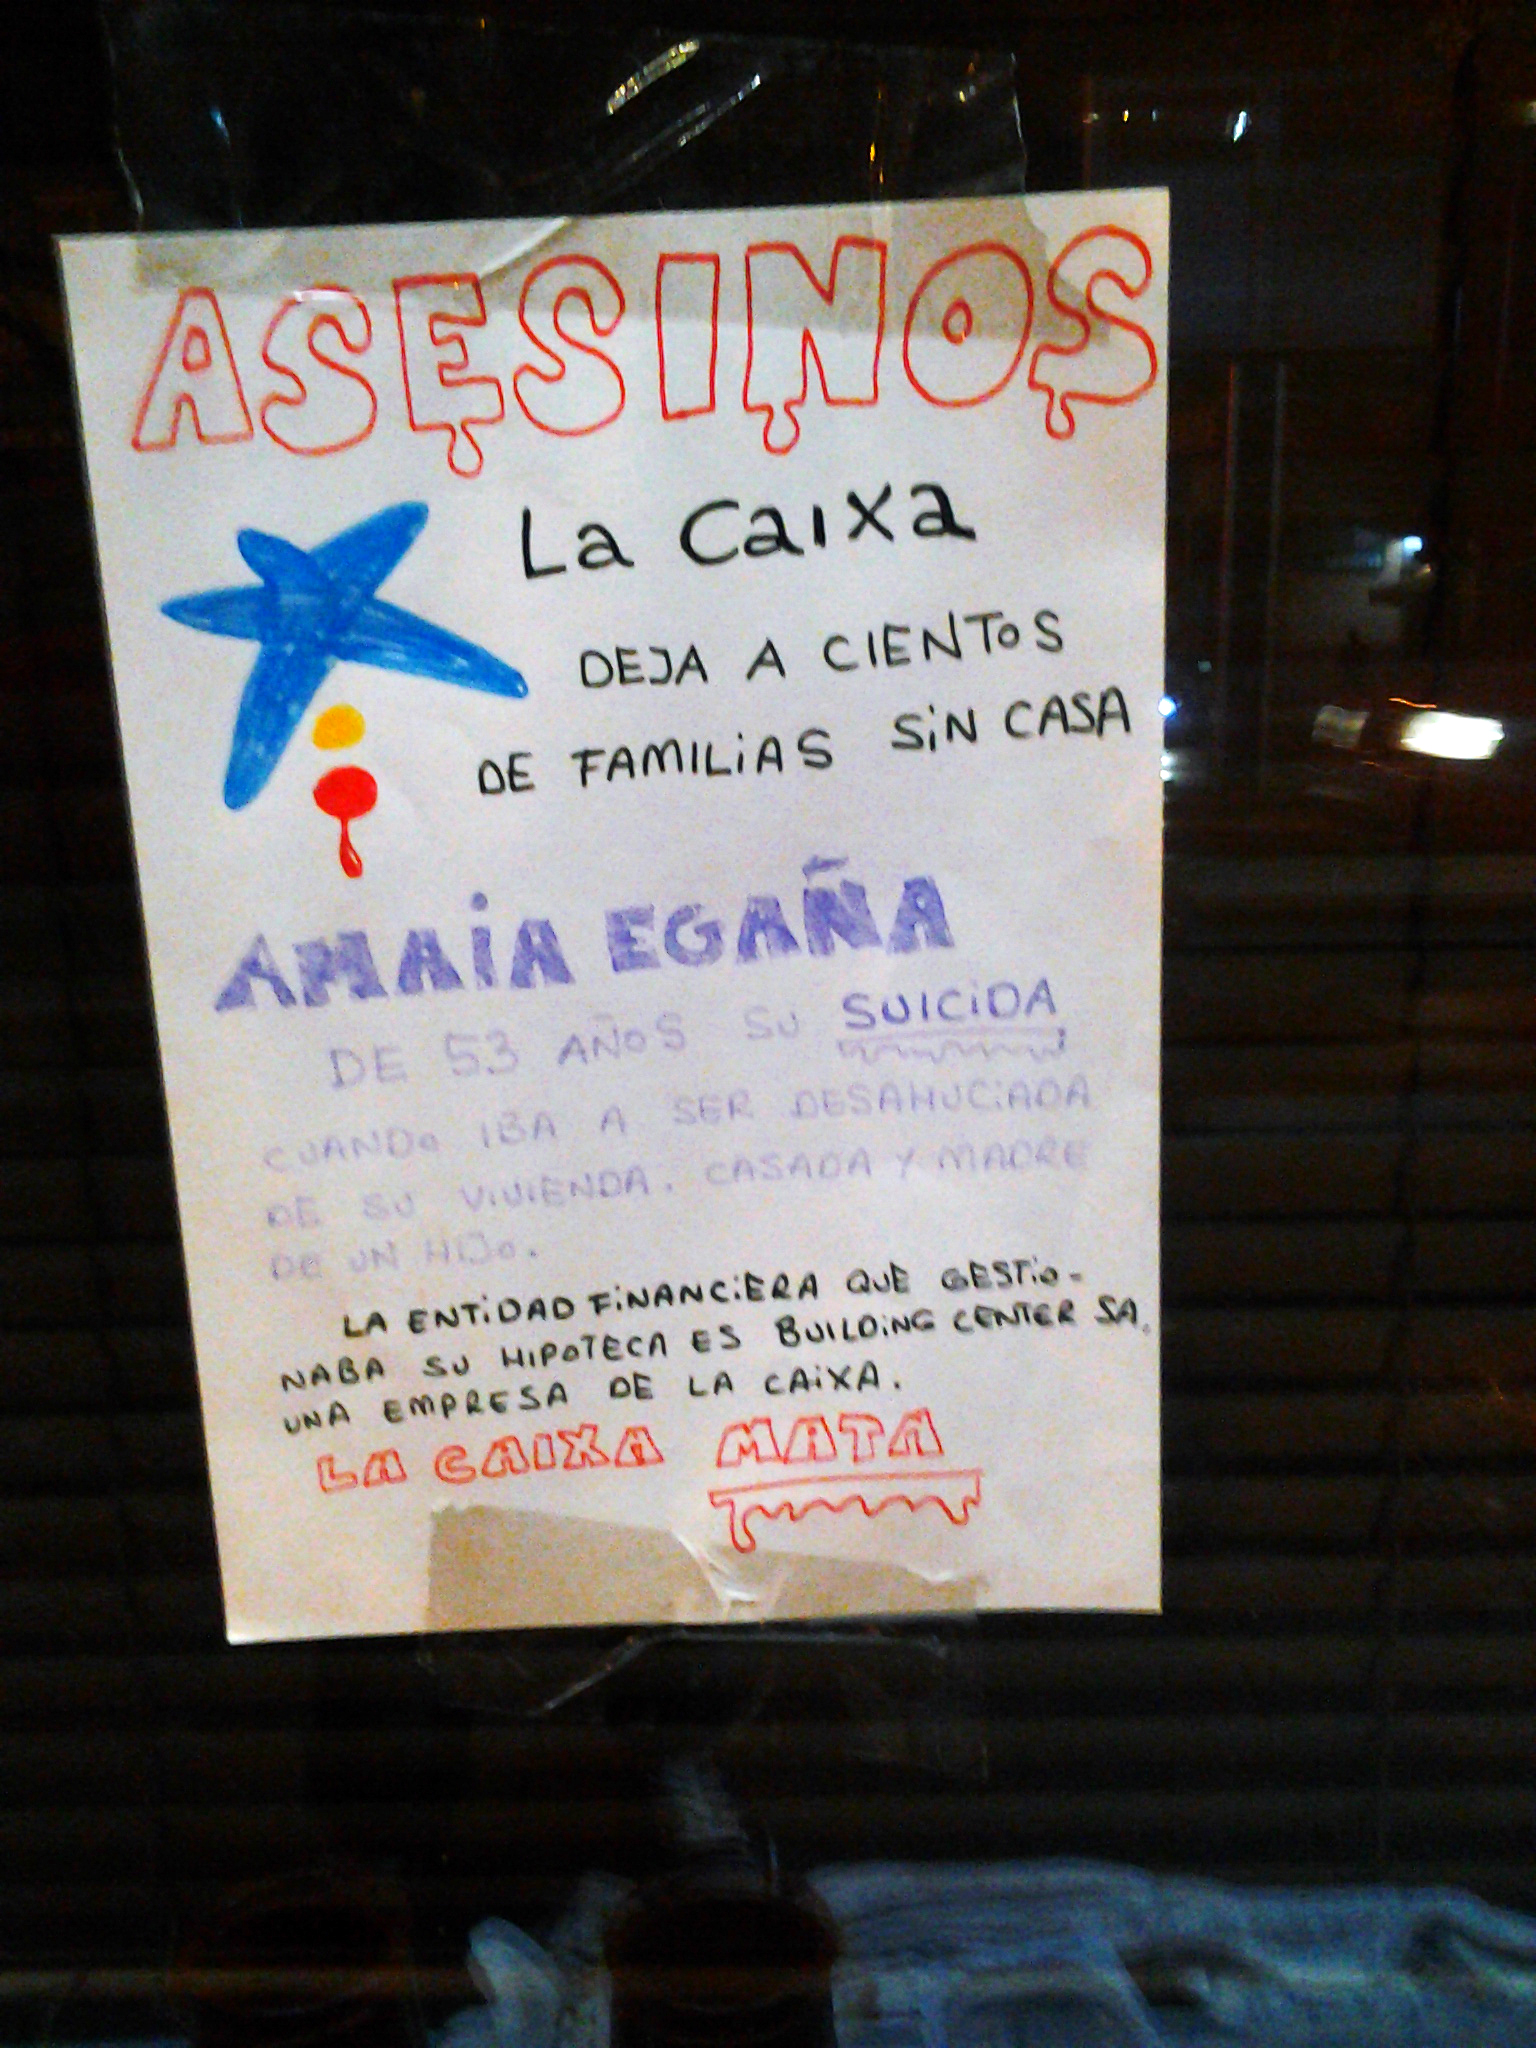 ASESINOS
La Caixa
DEJA A CIENTOS
DE FAMILIAS SIN CASA
AMAIA EGAÑA
DE 53 AÑOS SU SUICIDA,
CUANDO IBA A SER DESAHUCIADA
DE SU VIVIENDA. CASADA Y MADRE
DE UN HIJO.
LA ENTIDAD FINANCIERA QUE GESTIO-
NABA SU HIPOTECA ES BUILDING CENTER SA.
UNA EMPRESA DE LA CAIXA.
LA CAIXA MATA